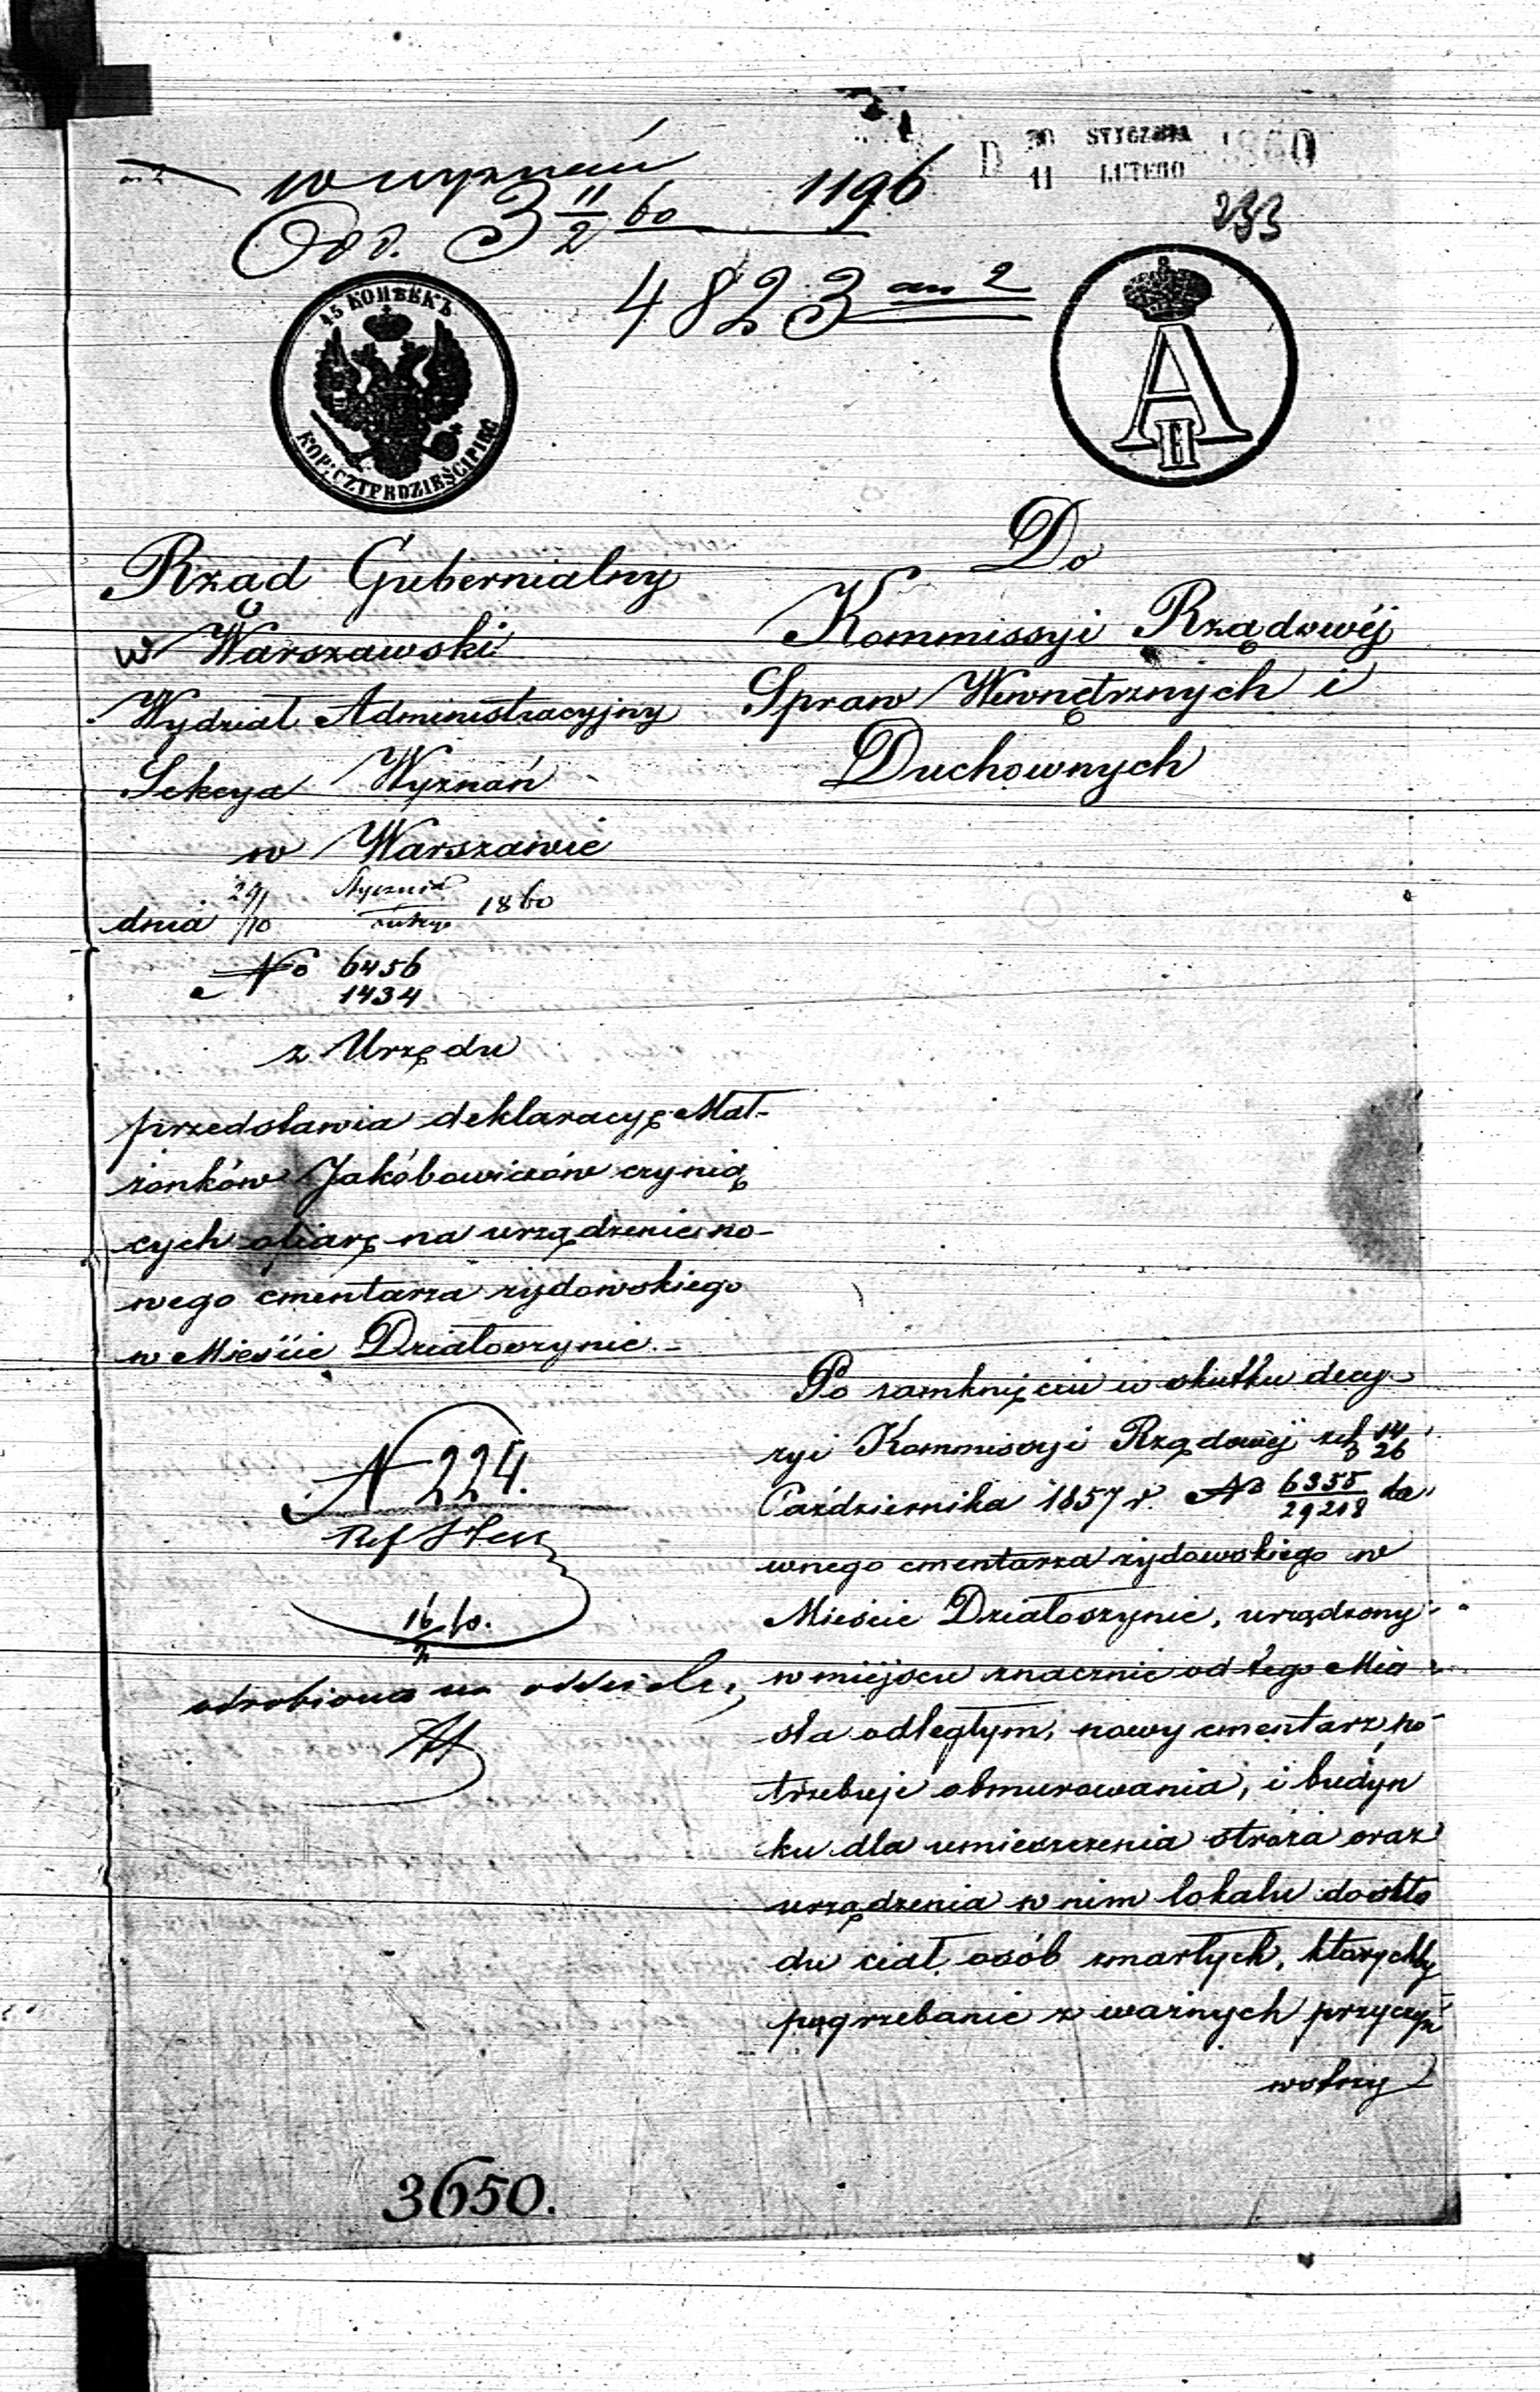 D 30 STYCZNIA 1860
11 LUTEGO
wyznań 1196
Odd. 3 11/2 60
233
4823 an 2
45 КОПѢЕКЪ
KOP: CZTERDZIEŚCI PIĘĆ
A II
Rząd Gubernialny
Warszawski
Wydział Administracyjny
Sekcya Wyznań
w Warszawie
dnia 29/10 Stycznia/Lutego 1860
No 6456
1434
z Urzędu
przedstawia deklaracyę Mał-
żonków Jakóbowiczów czynią
cych ofiarę na urządzenie no-
wego cmentarza żydowskiego
w Mieście Działoszynie.-
Do
Kommissyi Rządowéj
Spraw Wewnętrznych i
Duchownych
Po zamknięciu w skutku decy-
zyi Kommissyi Rządowéj z d 14/26
Października 1857 r. No 6355/29218 da
wnego cmentarza żydowskiego w
Mieście Działoszynie, urządzony
w miejscu znacznie od tego Mia
sta odległym, nowy cmentarz po
trzebuje obmurowania, i budyn
ku dla umieszczenia stróża oraz
urządzenia w nim lokalu do skła
du ciał osób zmarłych, którychby
pogrzebanie z ważnych przyczyn
N 224.
16/2 60.
odrobiono na oddziele
3650.